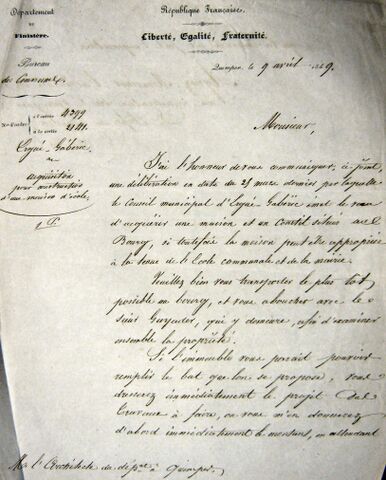 Département
du
Finistère.
Bureau
des Communes
Nos d'ordre
à l'entrée 4399
à la sortie 2141
Ergué-Gabéric
acquisition
pour construction
d'une maison d'école
République Française.
Liberté, Egalité, Fraternité.
Quimper, le 9 avril 1849.
Monsieur,
J'ai l'honneur de vous communiquer, ci-joint,
une délibération en date du 25 mars dernier par laquelle
le Conseil municipal d'Ergué Gabéric émet le vœu
d'acquérir une maison et un Courtil situés au
Bourg, si toutefois la maison peut être appropriée
à la tenue de l'Ecole communale et de la mairie.
Veuillez bien vous transporter le plus tôt
possible au bourg, et vous aboucher avec le
sieur qui y demeure, afin d'examiner
ensemble la propriété.
Si l'immeuble vous paraît pouvoir
remplir le but que l'on se propose, vous
dresserez immédiatement le projet des
travaux à faire, ou vous m'en donnerez
d'abord immédiatement le montant, en attendant
Mr l'Architecte du dépmt à Quimper.